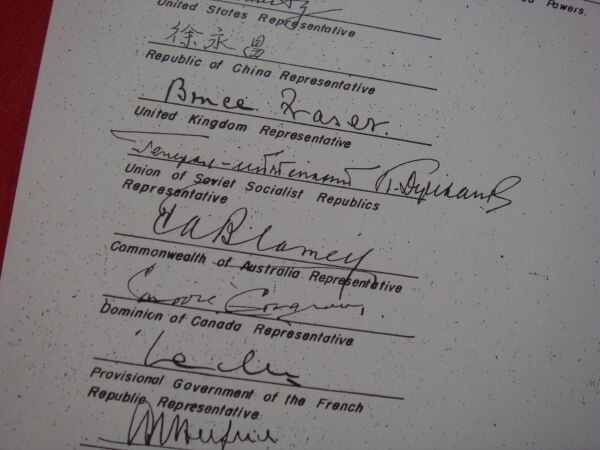 Powers.
United States Representative
徐永昌
Republic of China Representative
Bruce Fraser.
United Kingdom Representative
Генерал-лейтенант
Union of Soviet Socialist Republics
Representative
T A Blamey
Commonwealth of Australia Representative
Moore Cosgrave
Dominion of Canada Representative
Leclerc
Provisional Government of the French
Republic Representative